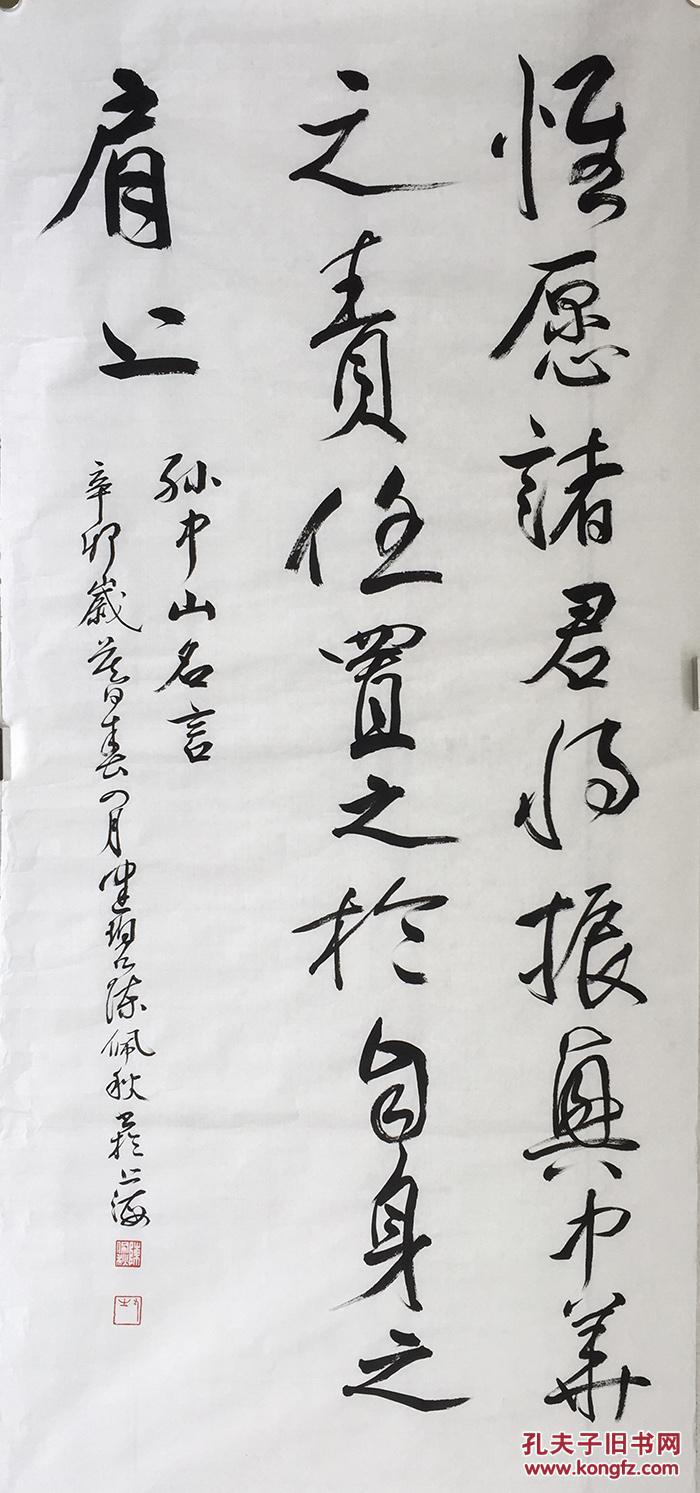 惟愿諸君将振興中華
之責任置之於自身之
肩上
孙中山名言
辛卯歳暮春四月健碧陈佩秋书於上海
孔夫子旧书网
www.kongfz.com